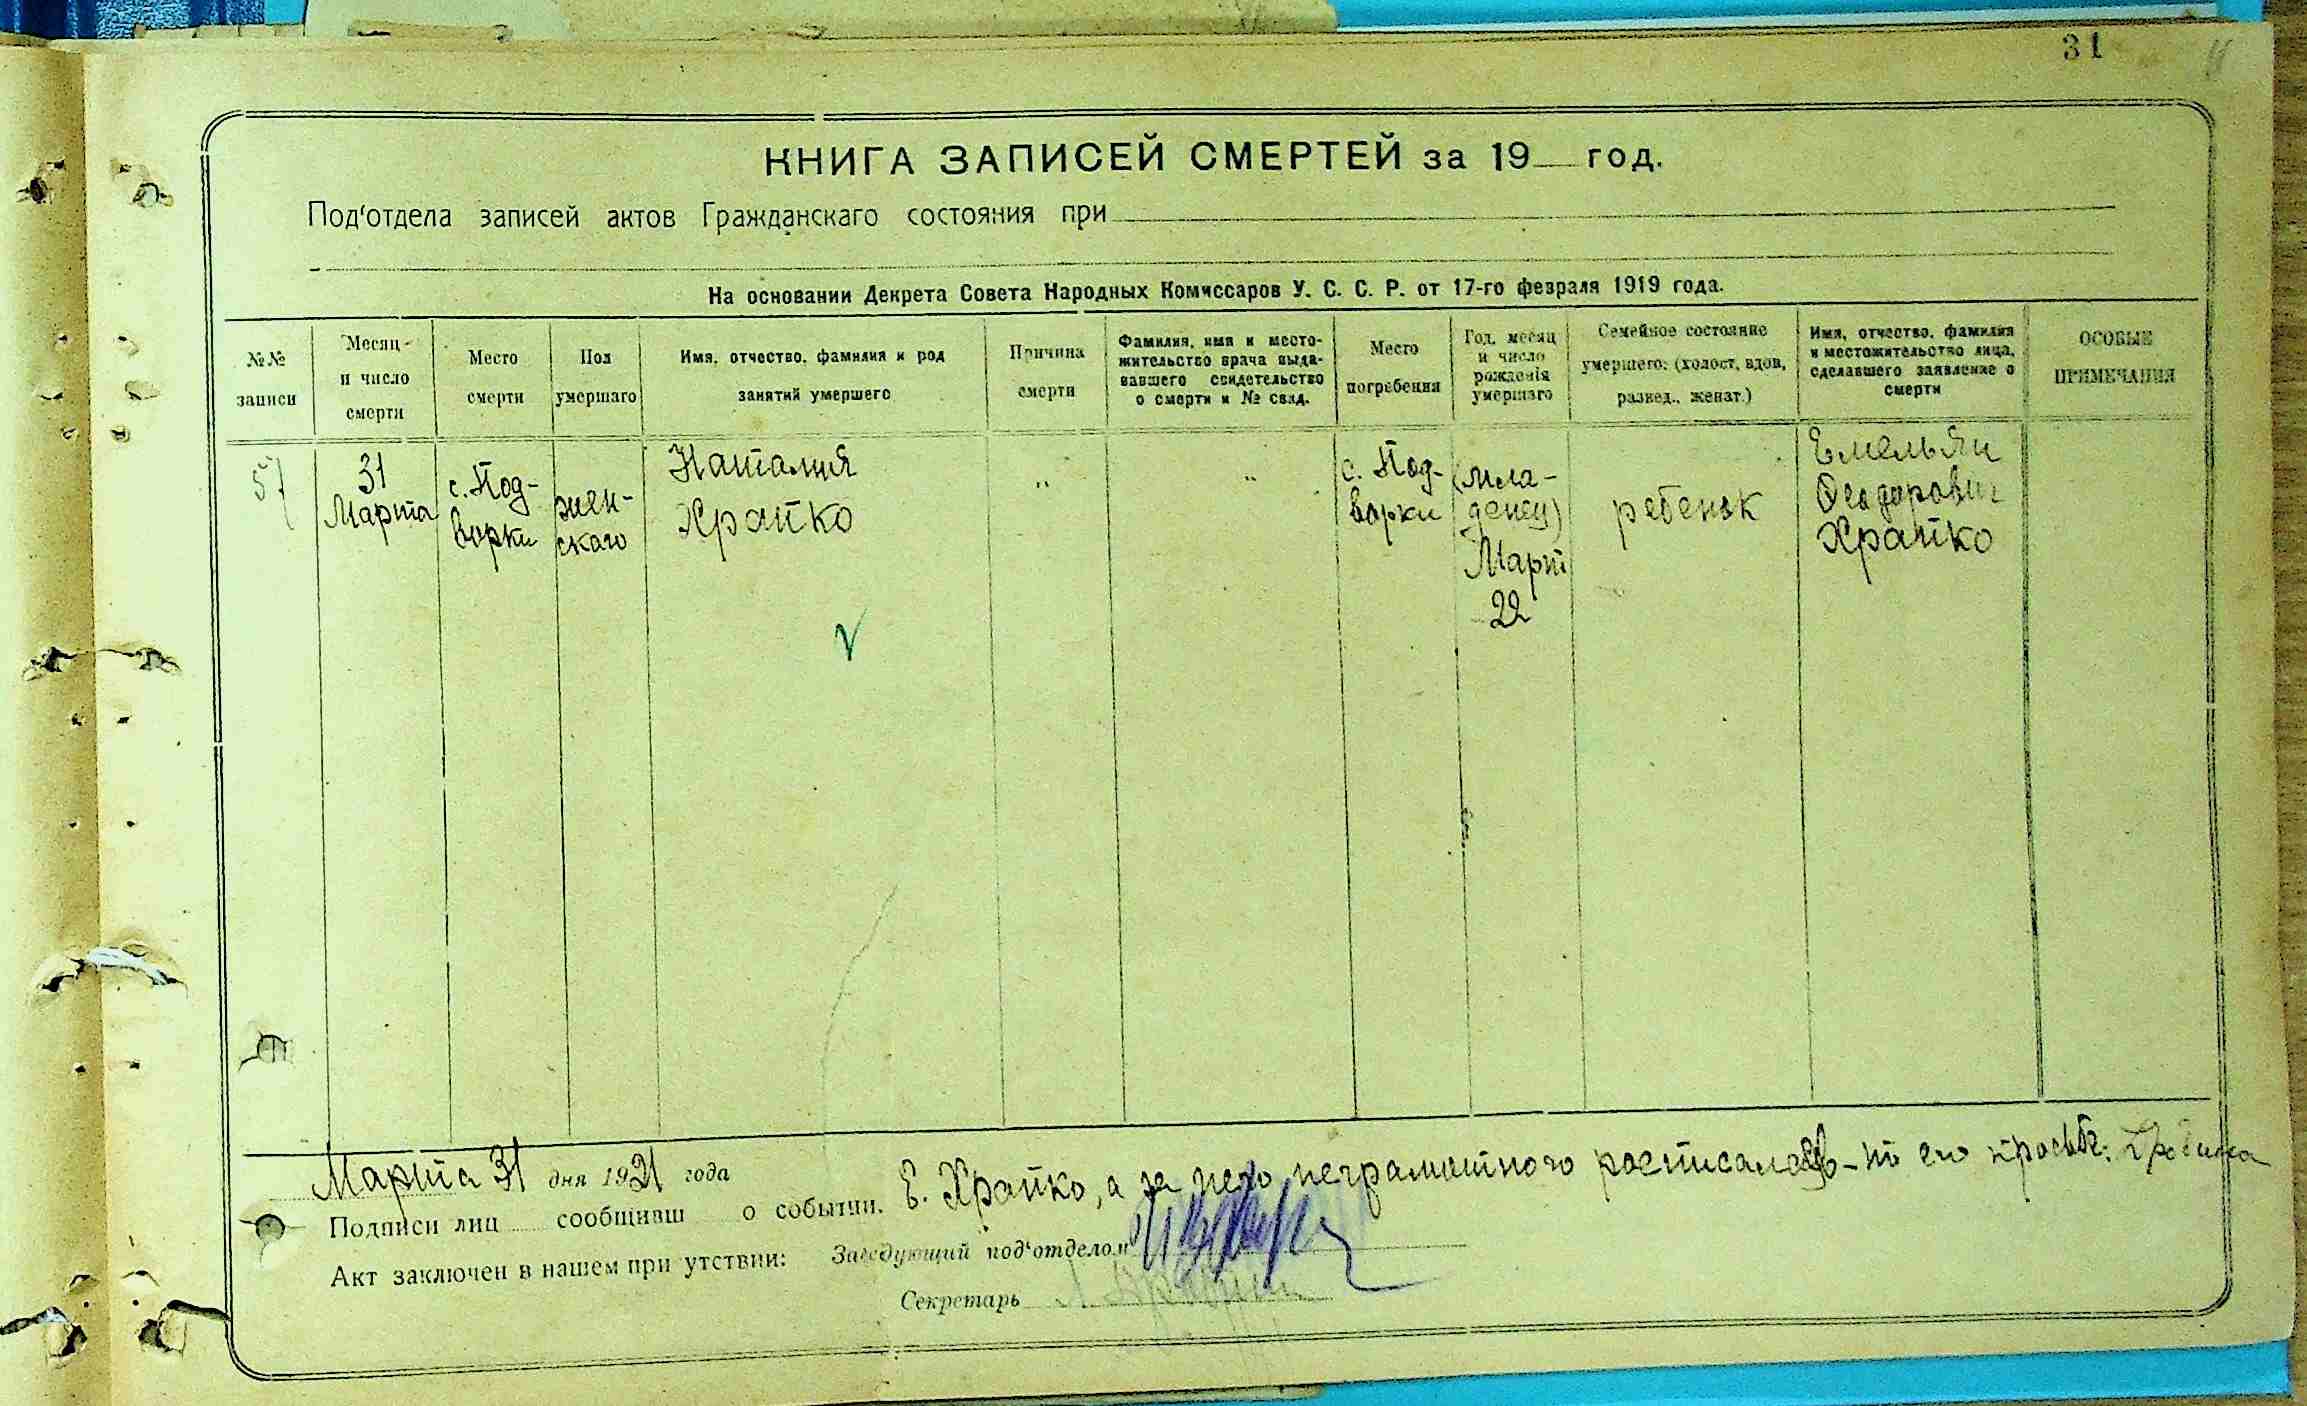 31
КНИГА ЗАПИСЕЙ СМЕРТЕЙ за 19 год.
Под'отдела записей актов Гражданскаго состояния при
На основании Декрета Совета Народных Комиссаров У. С. С. Р. от 17-го февраля 1919 года.
№№
записи
Месяц
и число
смерти
Место
смерти
Пол
умершаго
Имя, отчество, фамилия и род
занятий умершего
Причина
смерти
Фамилия, имя и место-
жительство врача выда-
вавшего свидетельство
о смерти и № свид.
Место
погребения
Год, месяц
и число
рождения
умершаго
Семейное состояние
умершего: (холост, вдов,
развед., женат.)
Имя, отчество, фамилия
и местожительство лица,
сделавшего заявление о
смерти
ОСОБЫЕ
ПРИМЕЧАНИЯ
57
31
Марта
с. Под-
ворки
жен-
скаго
Наталия
Храпко
"
"
с. Под-
ворки
(мла-
денец)
Март
22
ребенок
Емельян
Феодорович
Храпко
Марта 31 дня 1921 года
Подписи лиц сообщивш о событии. Е. Храпко, а за него неграмотного росписался по его просьбе:
Акт заключен в нашем при утствии: Заведующий под'отделом
Секретарь